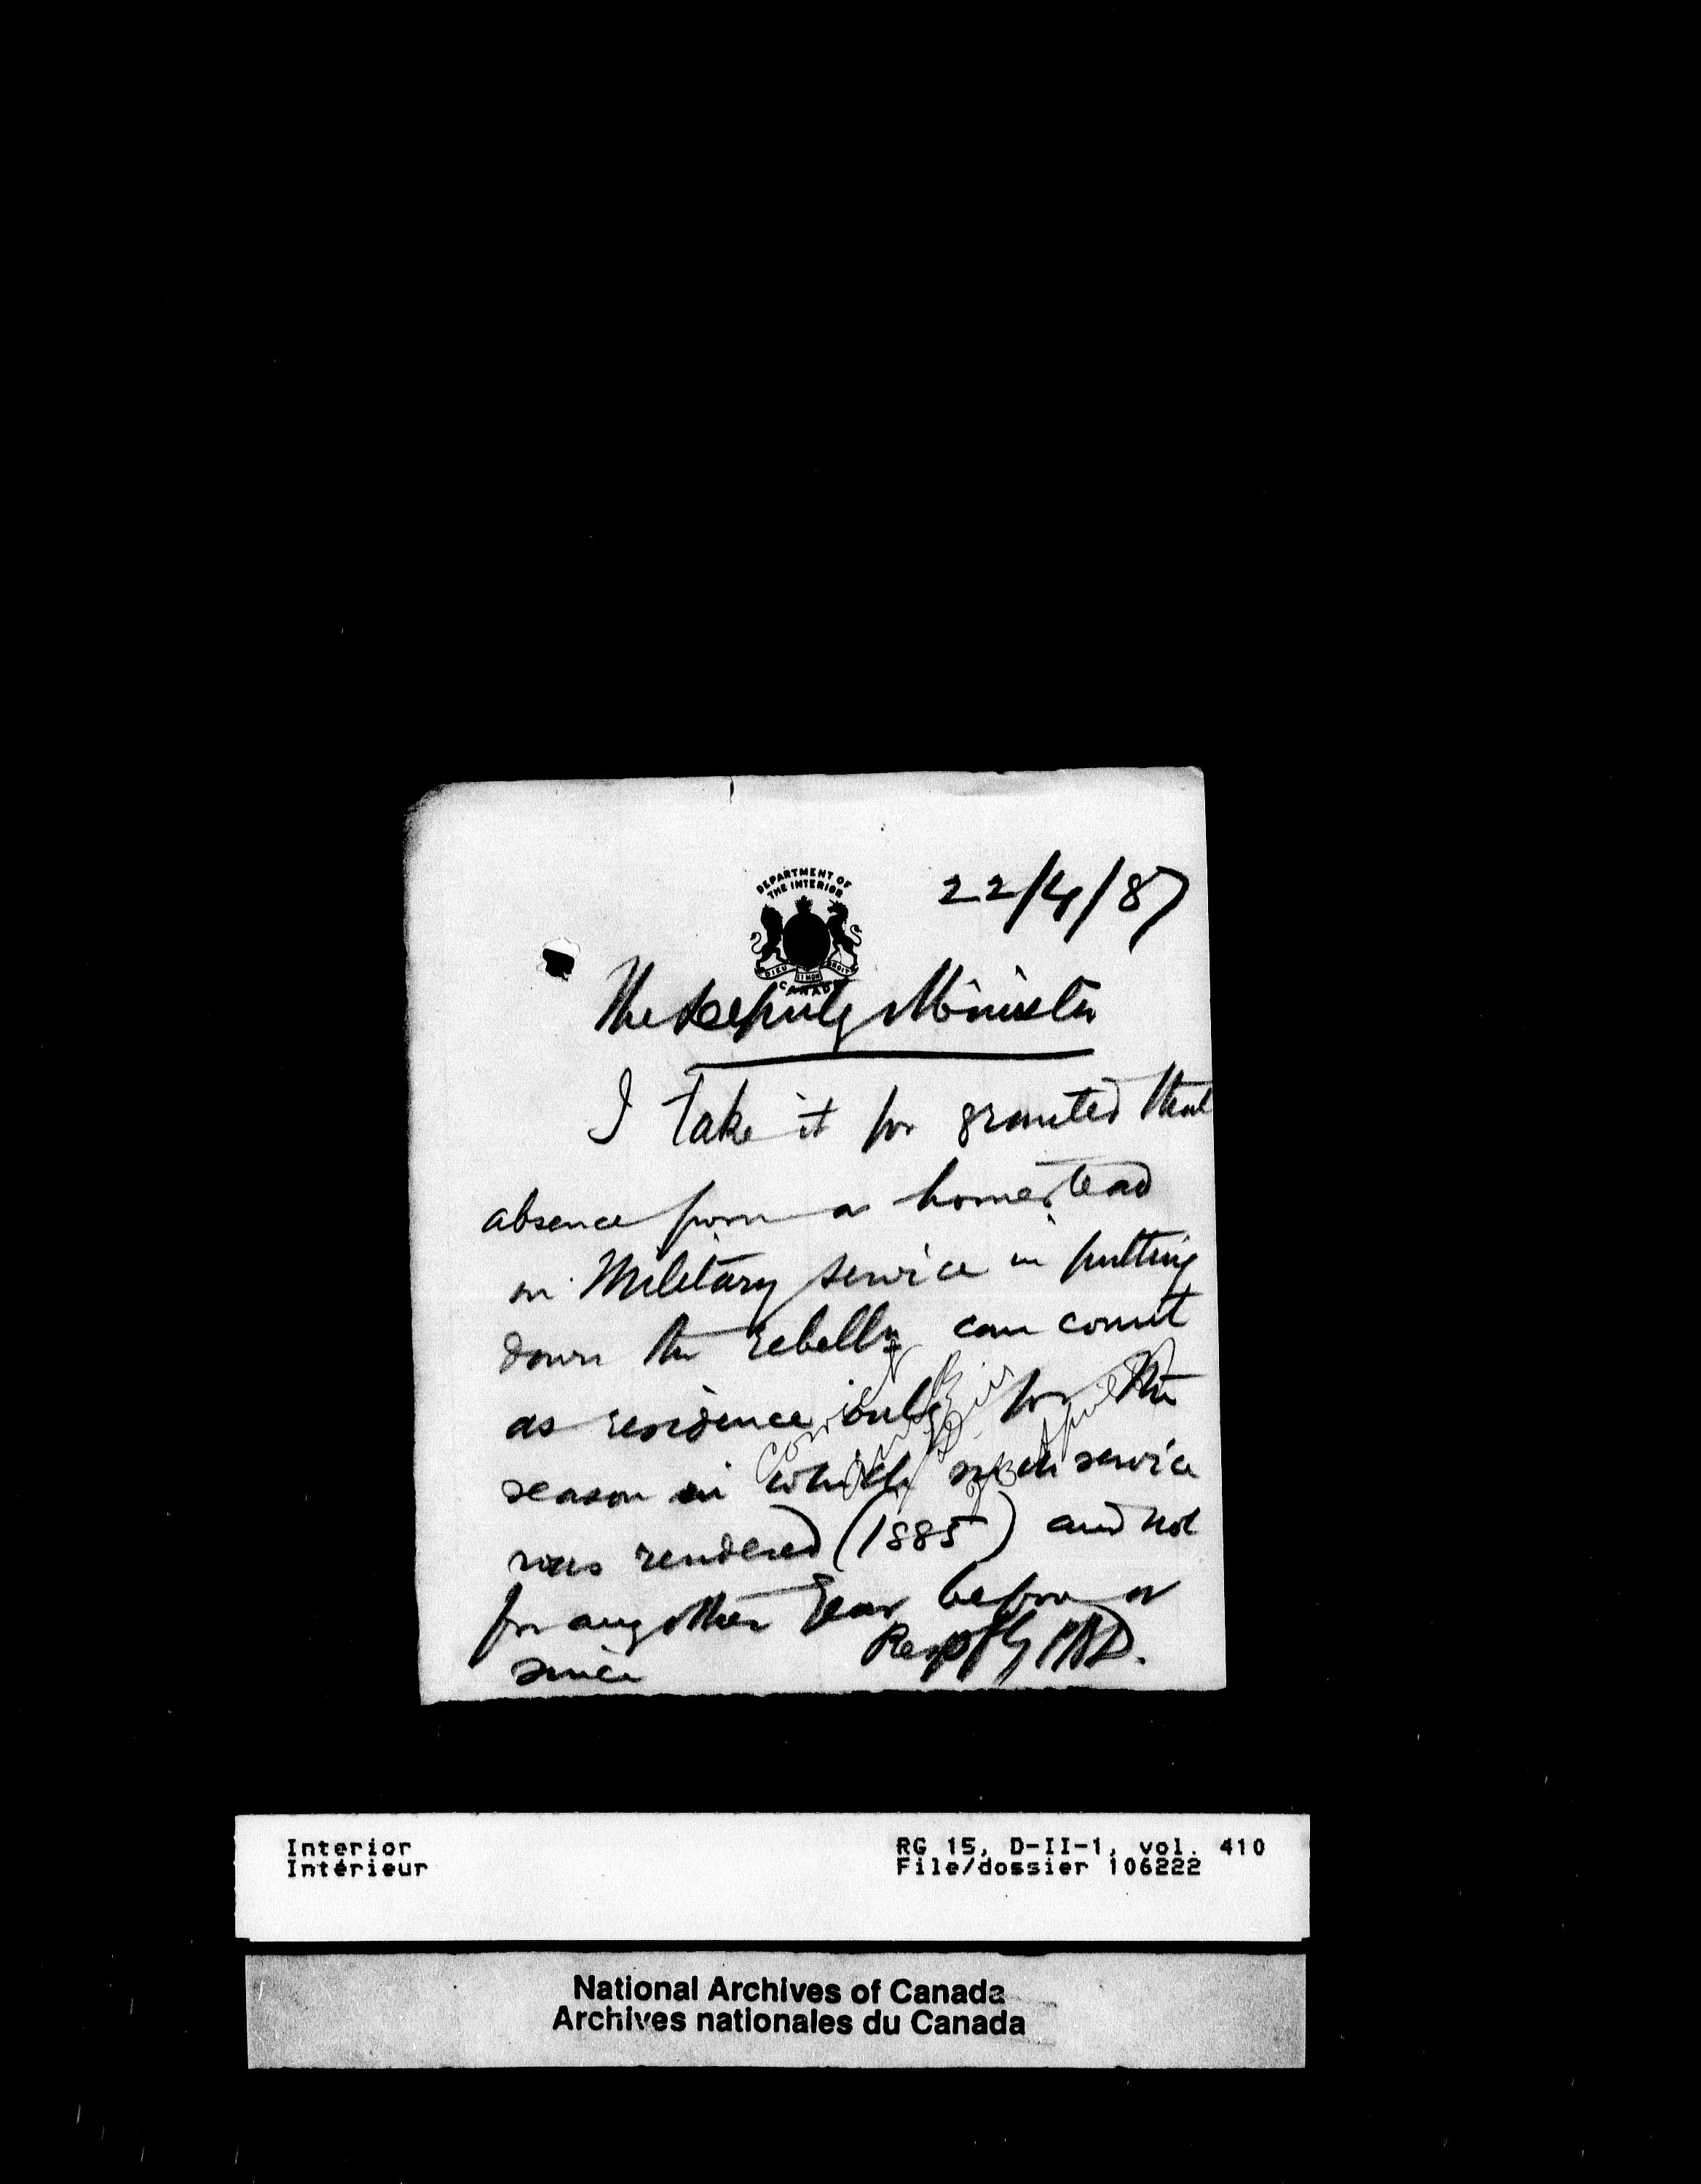 DEPARTMENT OF
THE INTERIOR
22/4/87
DIEU ET MON DROIT
CANADA
The Deputy Minister
I take it for granted that
absence from a homestead
on Military service in putting
down the rebelln can count
as residence only for the
season in which such service
was rendered (1885) and not
for any other year before or
since
Respfly
Correct
April
Interior
Intérieur
RG 15, D-II-1, vol. 410
File/dossier 106222
National Archives of Canada
Archives nationales du Canada